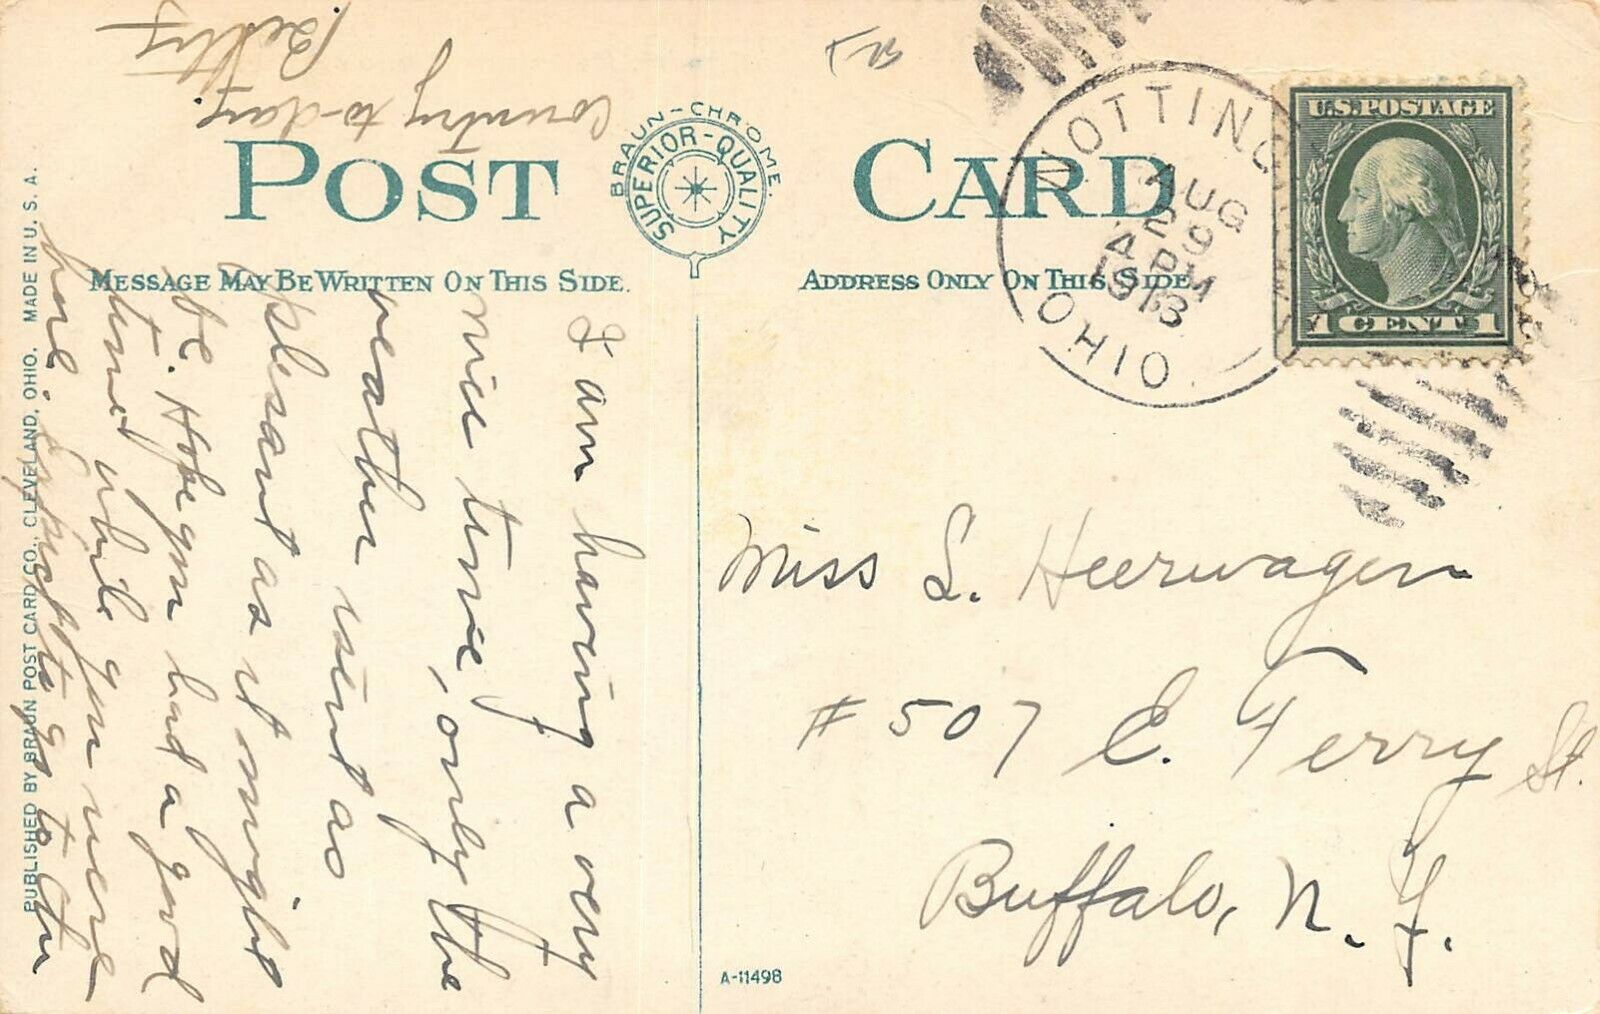 POST CARD
BRAUN-CHROME.
SUPERIOR-QUALITY
MESSAGE MAY BE WRITTEN ON THIS SIDE.
ADDRESS ONLY ON THIS SIDE
NOTTINGHAM
OHIO
AUG
29
4 PM
1913
U.S. POSTAGE
1 CENT 1
I am having a very
nice time, only the
weather isint as
plesant as it might
be. Hope you had a good
time while you were
here. Expect to go to the
country to-day.
Betty
Miss L. Heerwagen
# 507 E. Ferry St.
Buffalo, N. Y.
PUBLISHED BY BRAUN POST CARD CO., CLEVELAND, OHIO. MADE IN U. S. A.
A-11498